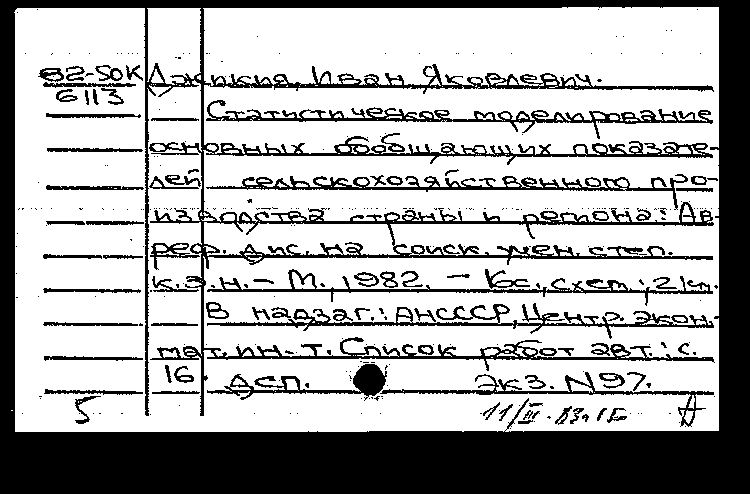 82-5OK Джикия, Иван Яковлевич.
6113
Статистическое моделирование
основных обобщающих показате-
лей сельскохозяйственного про-
изводства страны и региона: Ав-
реф. дис. на соиск. учен. степ.
к.э.н. - М., 1982. - с., схем.; 21 см.
В надзаг.: АНСССР, Центр. экон.-
мат. ин-т. Список работ авт.: с.
16. ДСП. Экз. N97.
5 11/III